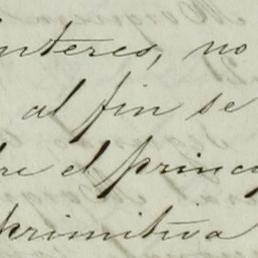 interes, no
al fin se
re el princ
primitiva